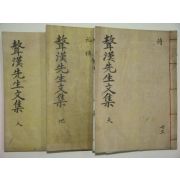 詩
聱漢先生文集 天
共三
聱漢先生文集 地
聱漢先生文集 人